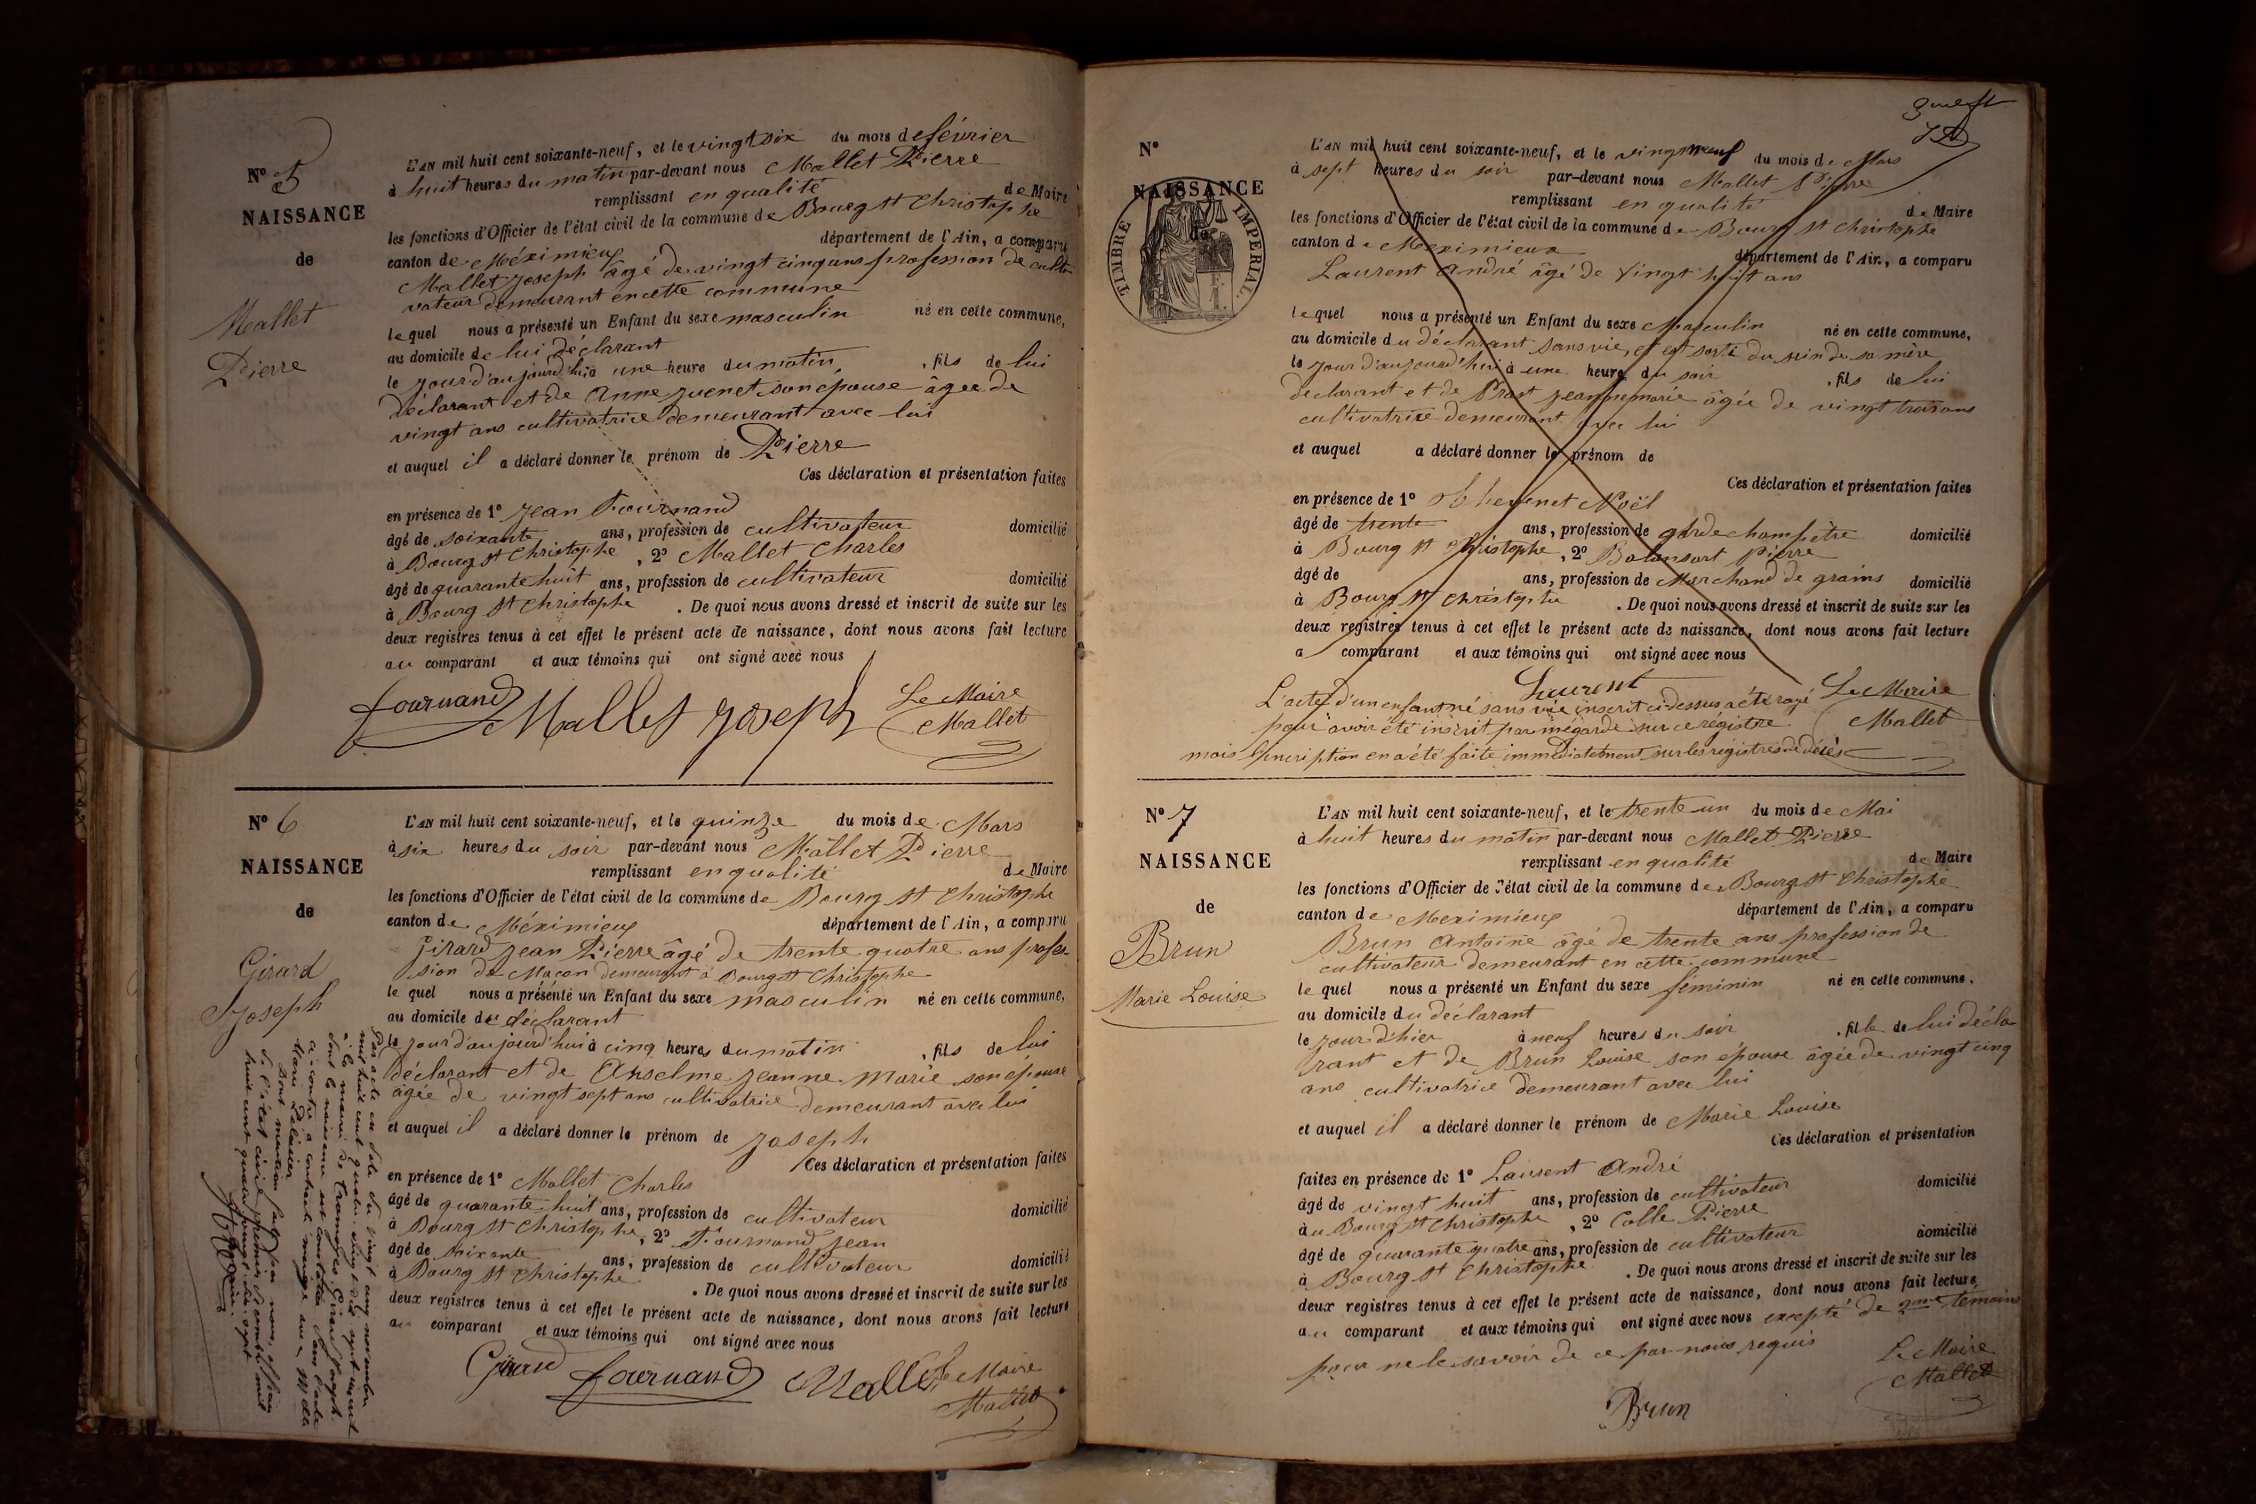 N° 5
NAISSANCE
de
Mallet
Pierre
L'AN mil huit cent soixante-neuf, et le vingt six du mois de février
à huit heures du matin par-devant nous Mallet Pierre
remplissant en qualité de Maire
les fonctions d'Officier de l'état civil de la commune de Bourg St Christophe
canton de Méximieux département de l'Ain, a comparu
Mallet Joseph âgé de vingt cinq ans profession de culti
vateur demeurant en cette commune
lequel nous a présenté un Enfant du sexe masculin né en cette commune,
au domicile de lui déclarant
le jour d'aujourd'hui à une heure du matin, fils de lui
déclarant et de Anne Juenet son épouse âgée de
vingt ans cultivatrice demeurant avec lui
et auquel il a déclaré donner le prénom de Pierre
Ces déclaration et présentation faites
en présence de 1° Jean Fournand
âgé de soixante ans, profession de cultivateur domicilié
à Bourg St Christophe, 2° Mallet Charles
âgé de quarante huit ans, profession de cultivateur domicilié
à Bourg St Christophe. De quoi nous avons dressé et inscrit de suite sur les
deux registres tenus à cet effet le présent acte de naissance, dont nous avons fait lecture
au comparant et aux témoins qui ont signé avec nous
fournand Mallet Joseph Le Maire
Mallet
N° 6
NAISSANCE
de
Girard
Joseph
L'AN mil huit cent soixante-neuf, et le quinze du mois de Mars
à six heures du soir par-devant nous Mallet Pierre
remplissant en qualité de Maire
les fonctions d'Officier de l'état civil de la commune de Bourg St Christophe
canton de Méximieux département de l'Ain, a comparu
Girard Jean Pierre âgé de trente quatre ans profes-
sion de Maçon demeurant à Bourg St Christophe
le quel nous a présenté un Enfant du sexe masculin né en cette commune,
au domicile du déclarant
le jour d'aujourd'hui à cinq heures du matin, fils de lui
déclarant et de Anselme Jeanne Marie son épouse
âgée de vingt sept ans cultivatrice demeurant avec lui
et auquel il a déclaré donner le prénom de Joseph
Ces déclaration et présentation faites
en présence de 1° Mallet Charles
âgé de quarante-huit ans, profession de cultivateur domicilié
à Bourg St Christophe, 2° Fournand Jean
âgé de soixante ans, profession de cultivateur domicilié
à Bourg St Christophe. De quoi nous avons dressé et inscrit de suite sur les
deux registres tenus à cet effet le présent acte de naissance, dont nous avons fait lecture
au comparant et aux témoins qui ont signé avec nous
Girard fournand Mallet Le Maire
Mallet
Par acte en date du vingt cinq novembre
mil huit cent quatre vingt dix sept
à la mairie de Tramoyes Girard Joseph
dont la naissance est constatée dans l'acte
ci-contre a contracté mariage avec Mlle
Marie
Dont mention faite par nous, officier
de l'état civil
huit cent quatre vingt dix sept
N°
NAISSANCE
de
TIMBRE IMPERIAL
L'AN mil huit cent soixante-neuf, et le vingt neuf du mois de Mars
à sept heures du soir par-devant nous Mallet Pierre
remplissant en qualité de Maire
les fonctions d'Officier de l'état civil de la commune de Bourg St Christophe
canton de Meximieux département de l'Ain, a comparu
Laurent André âgé de vingt huit ans
lequel nous a présenté un Enfant du sexe Masculin né en cette commune,
au domicile du déclarant sans vie, et est sorti du sein de sa mère
le jour d'aujourd'hui à une heure du soir, fils de lui
déclarant et de Prost Jeanne marie âgée de vingt trois ans
cultivatrice demeurant avec lui
et auquel a déclaré donner le prénom de
Ces déclaration et présentation faites
en présence de 1° Noël
âgé de trente ans, profession de garde champêtre domicilié
à Bourg St Christophe, 2° Pierre
âgé de ans, profession de Marchand de grains domicilié
à Bourg St Christophe. De quoi nous avons dressé et inscrit de suite sur les
deux registres tenus à cet effet le présent acte de naissance, dont nous avons fait lecture
a comparant et aux témoins qui ont signé avec nous
Laurent Le Maire
L'acte d'un enfant né sans vie inscrit ci-dessus a été rayé
pour avoir été inscrit par mégarde sur ce régistre Mallet
mais l'inscription en a été faite immédiatement sur les régistres de décès
N° 7
NAISSANCE
de
Brun
Marie Louise
L'AN mil huit cent soixante-neuf, et le trente-un du mois de Mai
à huit heures du matin par-devant nous Mallet Pierre
remplissant en qualité de Maire
les fonctions d'Officier de l'état civil de la commune de Bourg St Christophe
canton de Meximieux département de l'Ain, a comparu
Brun Antoine âgé de trente ans profession de
cultivateur demeurant en cette commune
le quel nous a présenté un Enfant du sexe féminin né en cette commune,
au domicile du déclarant
le jour d'hier à neuf heures du soir, fille de lui décla
rant et de Brun Louise son épouse âgée de vingt cinq
ans cultivatrice demeurant avec lui
et auquel il a déclaré donner le prénom de Marie Louise
Ces déclaration et présentation
faites en présence de 1° Laurent André
âgé de vingt huit ans, profession de cultivateur domicilié
à Bourg St Christophe, 2° Colle Pierre
âgé de quarante quatre ans, profession de cultivateur domicilié
à Bourg St Christophe. De quoi nous avons dressé et inscrit de suite sur les
deux registres tenus à cet effet le présent acte de naissance, dont nous avons fait lecture
au comparant et aux témoins qui ont signé avec nous excepté de 2me témoins
pour ne le savoir de ce par nous requis
Le Maire
Mallet
Brun